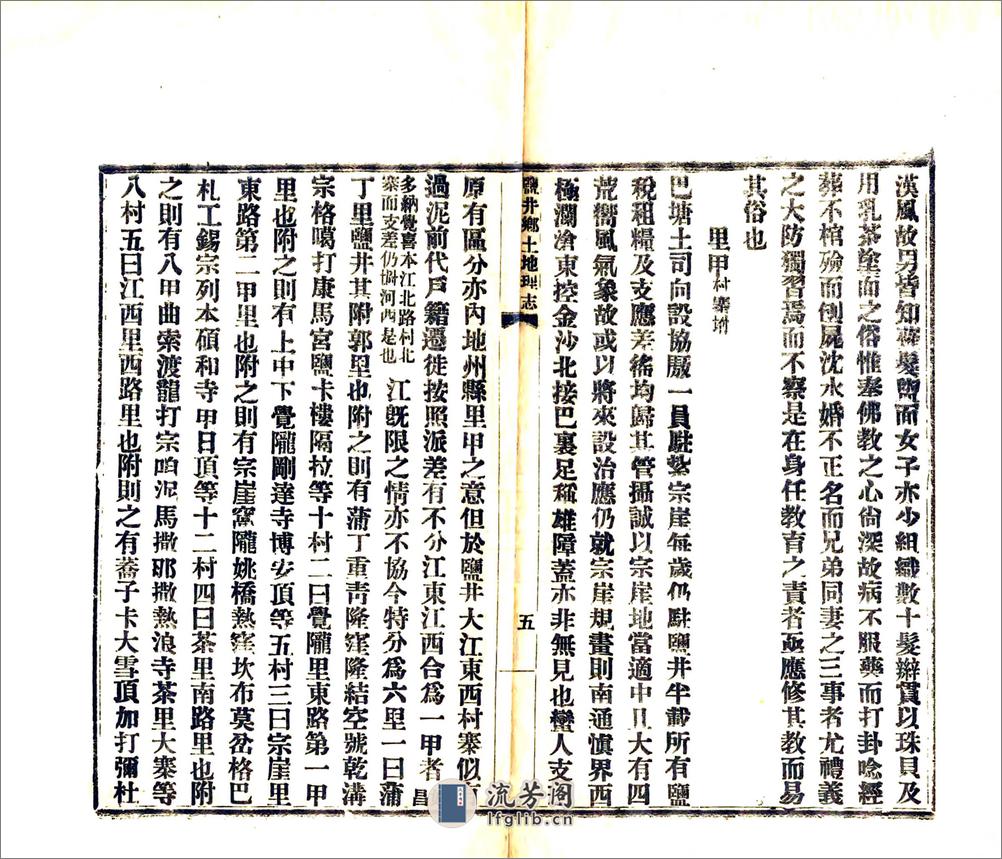 漢風故男皆知薙髮盥面女子亦少組織數十髮辮貫以珠貝及
用乳茶塗面之俗惟奉佛教之心尙深故病不服藥而打卦唸經
葬不棺殮而刳屍沈水婚不正名而兄弟同妻之三事者尤禮義
之大防獨習焉而不察是在身任教育之責者亟應修其教而易
其俗也
里甲村寨增
巴塘土司向設協廒一員駐紮宗崖每歲仍駐鹽井半載所有鹽
稅租糧及支應差徭均歸其管攝誠以宗崖地當適中且大有四
荒嚮風氣象故或以將來設治應仍就宗崖規畫則南通滇界西
極瀾滄東控金沙北接巴裏足稱雄障蓋亦非無見也蠻人支
鹽井鄉土地理志
五
原有區分亦內地州縣里甲之意但於鹽井大江東西村寨似
過泥前代戶籍遷徙按照派差有不分江東江西合爲一甲者昌
多納覺喜本江北路村北
寨而支差仍嚮河西是也
江旣限之情亦不協今特分爲六里一曰蒲
丁里鹽井其附郭里也附之則有蒲丁重靑隆窪隆結空號乾溝
宗格噶打康馬宮鹽卡樓隔拉等十村二曰覺隴里東路第一甲
里也附之則有上中下覺隴剛達寺博安頂等五村三曰宗崖里
東路第二甲里也附之則有宗崖窩隴姚橋熱窪坎布莫岔格巴
札工錫宗列本碩和寺甲日頂等十二村四曰茶里南路里也附
之則有八甲曲索渡龍打宗咱泥馬撒耶撒熱浪寺茶里大寨等
八村五曰江西里西路里也附則之有蕎子卡大雪頂加打彌杜
流芳阁
lfglib.cn